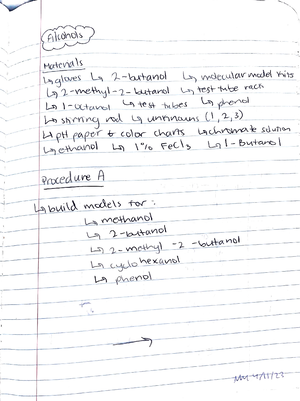 Alcohols
Materials
↳ gloves ↳ 2-butanol ↳ molecular model kits
↳ 2-methyl-2-butanol ↳ test tube rack
↳ 1-octanol ↳ test tubes ↳ phenol
↳ stirring rod ↳ unknowns (1, 2, 3)
↳ pH paper & color charts ↳ chromate solution
↳ ethanol ↳ 1% FeCl3 ↳ 1-Butanol
Procedure A
↳ build models for:
↳ methanol
↳ 2-butanol
↳ 2-methyl-2-butanol
↳ cyclohexanol
↳ phenol